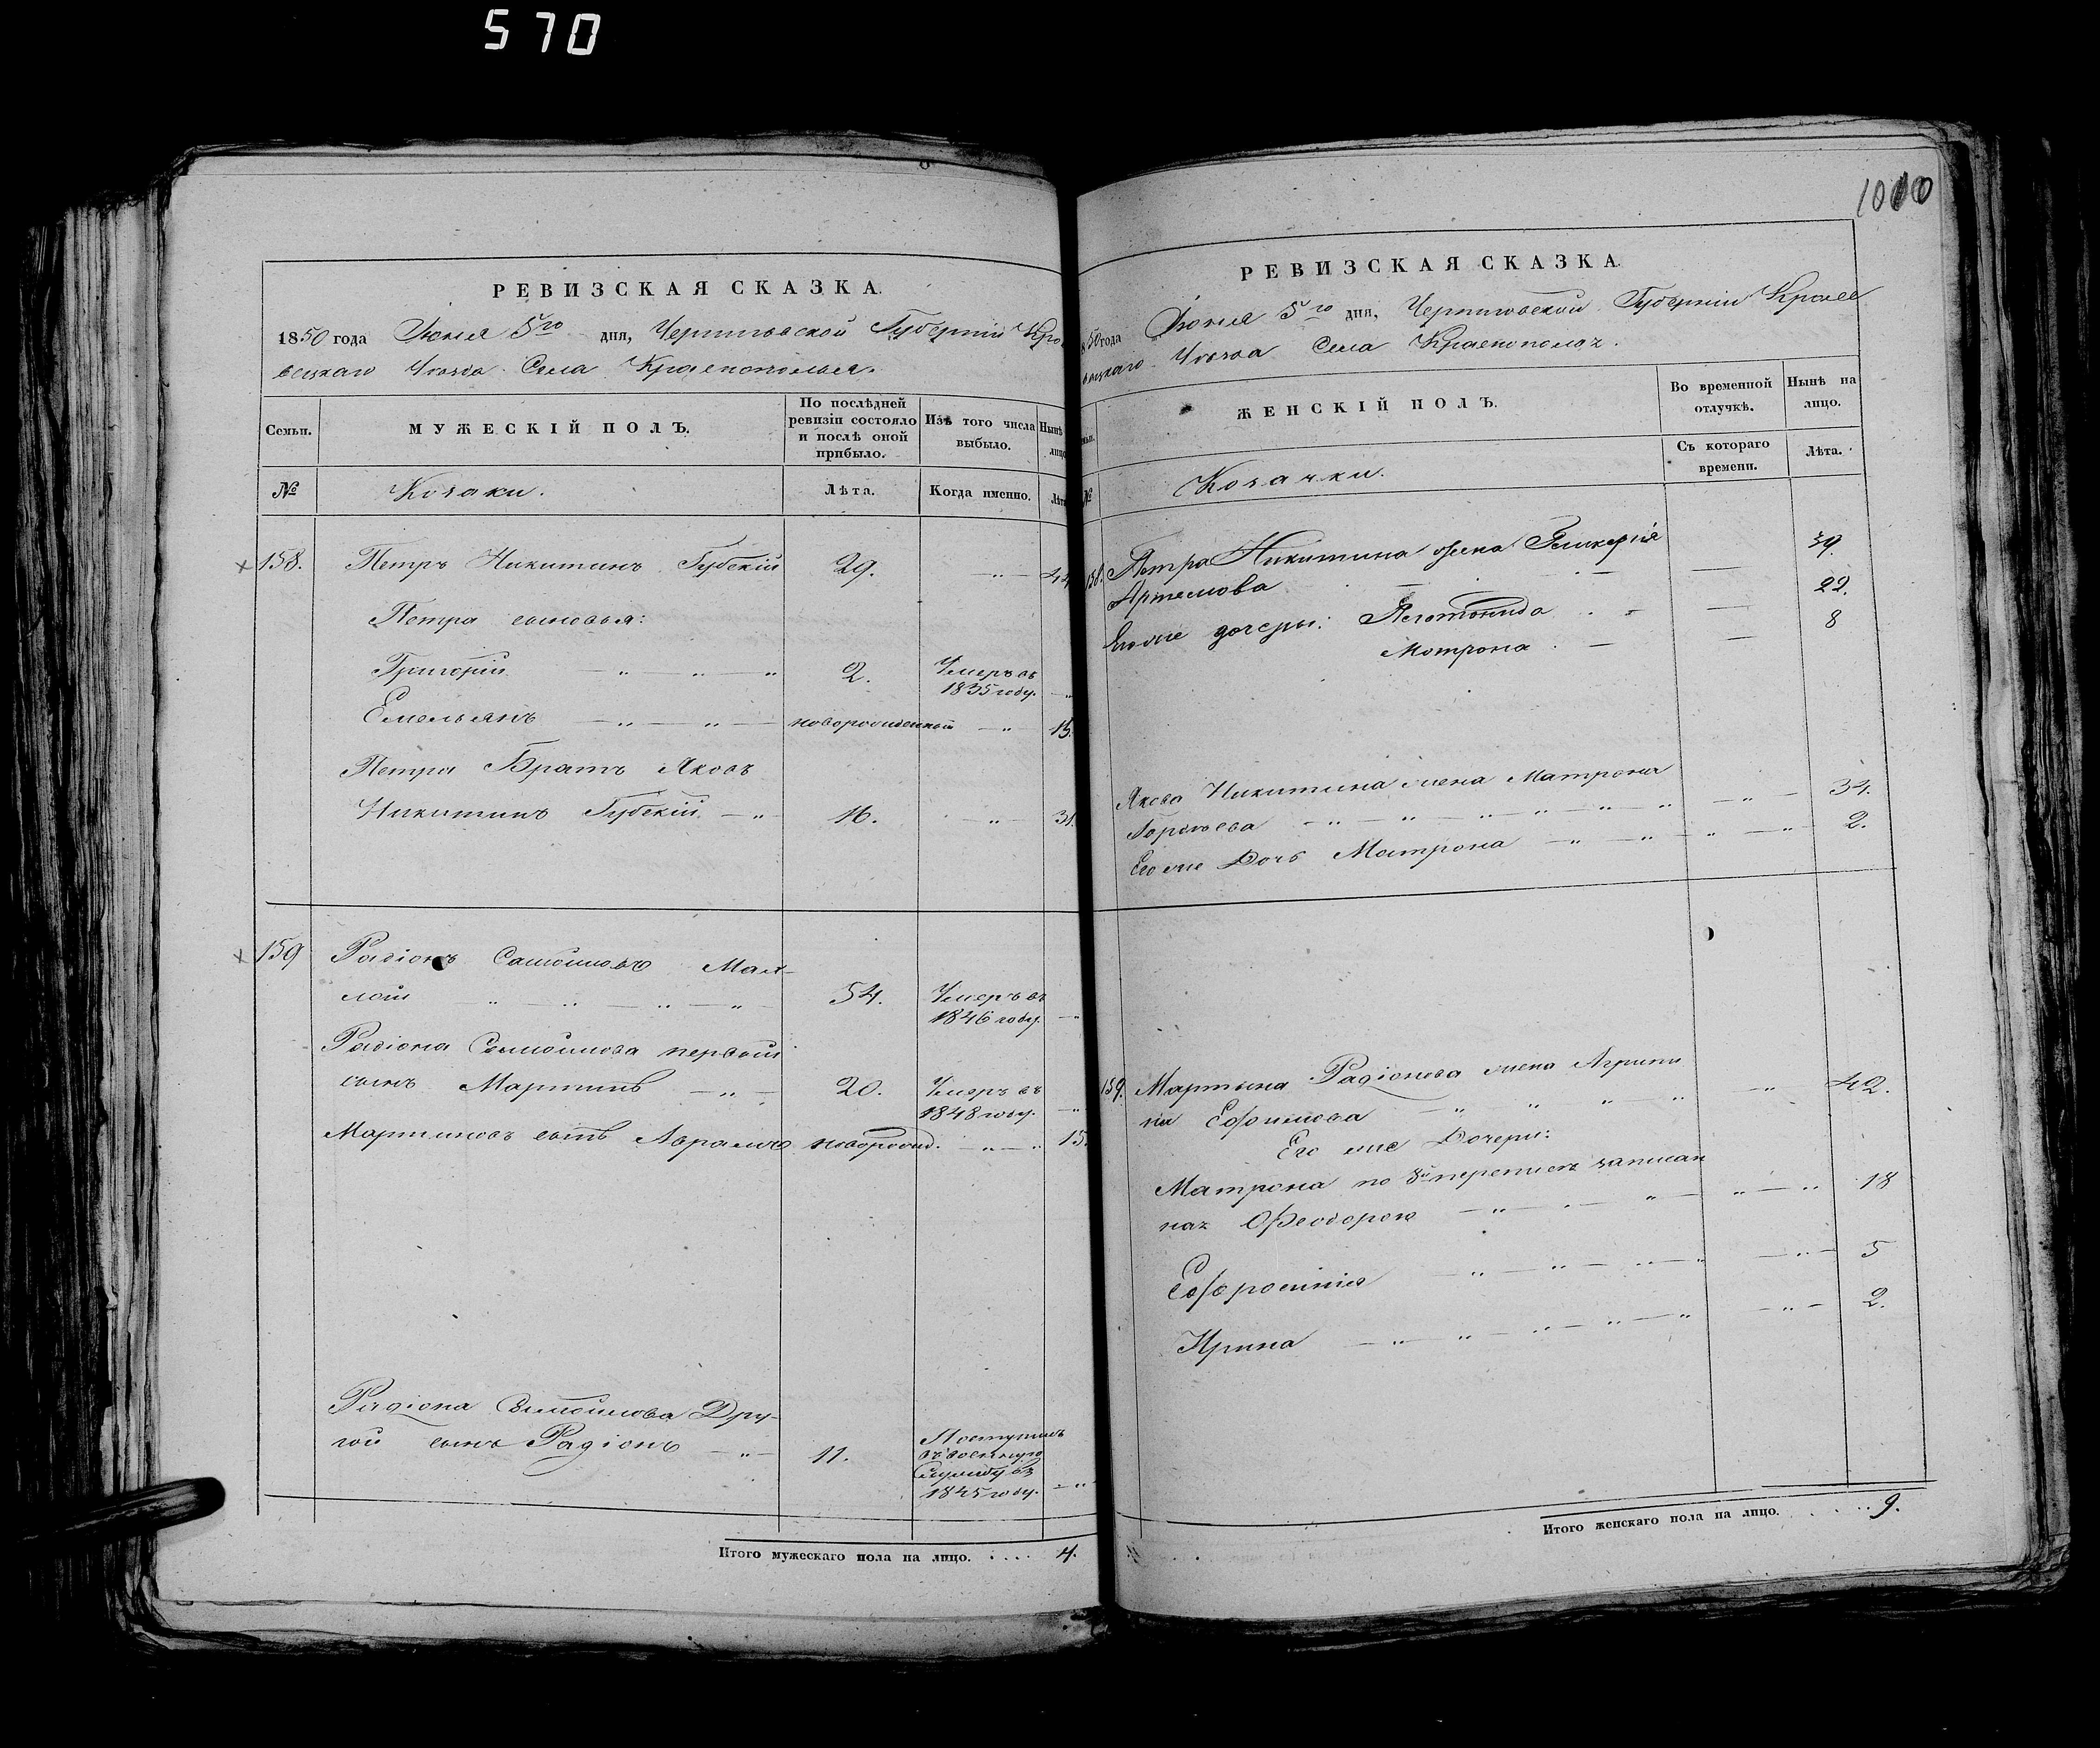 570
1000
РЕВИЗСКАЯ СКАЗКА.
1850 года Июня 5го дня, Черниговской Губернии Кро
вецкаго Уезда Села Краснополья.
Семьи.
МУЖЕСКІЙ ПОЛЪ.
По послѣдней ревизіи состояло и послѣ оной прибыло.
Изъ того числа выбыло.
Нынѣ лицо
№
Козаки.
Лѣта.
Когда именно.
Лѣта
158. Петръ Никитинъ Губскій 29. 44
Петра сыновья:
Григорій 2. Умеръ въ 1835 году.
Емельянъ новорожденный 15.
Петра Братъ Яковъ
Никитинъ Губскій 16. 31.
159 Радіонъ Самойловъ Мал-
лой 54. Умеръ въ 1846 году.
Радіона Самойлова первый
сынъ Мартинъ 20. Умеръ въ 1848 году.
Мартиновъ сынъ Абрамъ новорожд. 15.
Радіона Самойлова Дру-
гой сынъ Радіонъ 11. Поступилъ въ военную Службу въ 1845 году.
Итого мужескаго пола на лицо. . . . . 4.
РЕВИЗСКАЯ СКАЗКА.
50 года Июня 5го дня, Черниговской Губерніи Кролев
вецкаго Уезда Села Краснополья.
ЖЕНСКІЙ ПОЛЪ.
Во временной отлучкѣ.
Нынѣ на лицо.
Съ котораго времени.
Лѣта.
№
Козачки.
158. Петра Никитина жена Гликерія
Артемова 39
Его же дочеры: 22.
Мотрона 8
Якова Никитина жена Матрона
34.
Его же Дочь Матрона 2.
159. Мартына Радіонова жена Агрипи
на Ефимова 42.
Его же Дочери:
Матрона по 8й переписѣ записан
ная Феодорою 18
Ефросинія 5
Ирина 2.
Итого женскаго пола на лицо. . . . . 9.